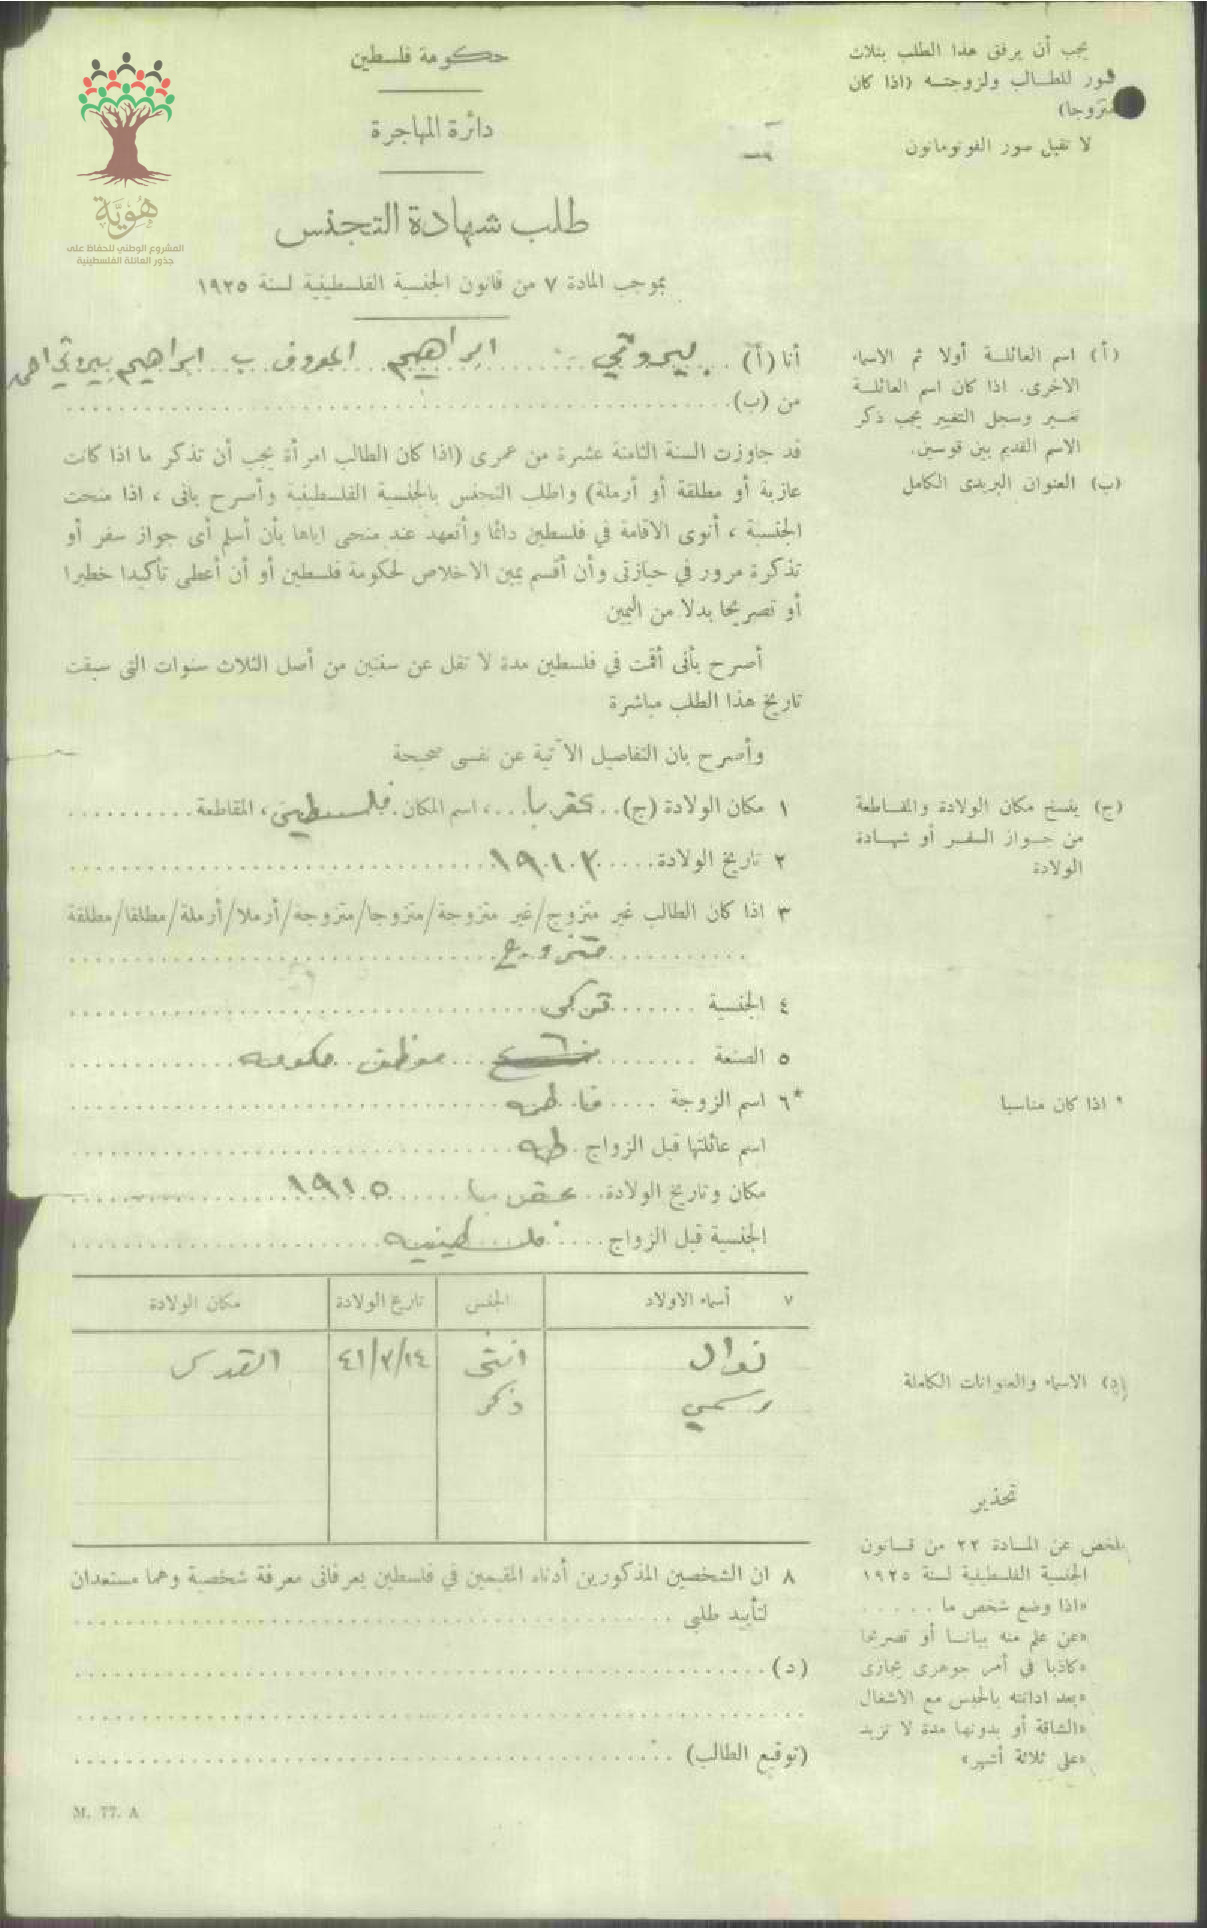 هُويَّة
المشروع الوطني للحفاظ على
جذور العائلة الفلسطينية
حكومة فلسطين
دائرة المهاجرة
طلب شهادة التجنس
بموجب المادة ٧ من قانون الجنسية الفلسطينية لسنة ١٩٢٥
يجب أن يرفق هذا الطلب بثلاث
صور للطالب ولزوجته (اذا كان
متزوجا)
لا تقبل صور الفوتوماتون
أنا (أ) بيروتي ابراهيم المعروف ب ابراهيم بيروتي
من (ب)
قد جاوزت السنة الثامنة عشرة من عمرى (اذا كان الطالب امرأة يجب أن تذكر ما اذا كانت
عازبة أو مطلقة أو أرملة) واطلب التجنس بالجنسية الفلسطينية وأصرح بانى ، اذا منحت
الجنسية ، أنوى الاقامة في فلسطين دائما وأتعهد عند منحى اياها بأن أسلم أى جواز سفر أو
تذكرة مرور في حيازتى وأن أقسم يمين الاخلاص لحكومة فلسطين أو أن أعطى تأكيدا خطيرا
أو تصريحا بدلا من اليمين
أصرح بأنى أقمت في فلسطين مدة لا تقل عن سنتين من أصل الثلاث سنوات التى سبقت
تاريخ هذا الطلب مباشرة
وأصرح بان التفاصيل الآتية عن نفسى صحيحة
١ مكان الولادة (ج) عقربا ، اسم المكان فلسطين ، المقاطعة
٢ تاريخ الولادة ١٩٠٣
٣ اذا كان الطالب غير متزوج/غير متزوجة/متزوجا/متزوجة/أرملا/أرملة/مطلقا/مطلقة
متزوج
٤ الجنسية تركي
٥ الصنعة موظف حكومه
*٦ اسم الزوجة فاطمه
اسم عائلتها قبل الزواج طه
مكان وتاريخ الولادة عقربا ١٩١٥
الجنسية قبل الزواج فلسطينيه
٧ أسماء الاولاد الجنس تاريخ الولادة مكان الولادة
نوال انثى ٤١/٣/١٤ القدس
رسمي ذكر
٨ ان الشخصين المذكورين أدناه المقيمين في فلسطين يعرفانى معرفة شخصية وهما مستعدان
لتأييد طلبى
(د)
(توقيع الطالب)
M. 77. A
(أ) اسم العائلة أولا ثم الاسماء
الاخرى. اذا كان اسم العائلة
تغير وسجل التغيير يجب ذكر
الاسم القديم بين قوسين.
(ب) العنوان البريدى الكامل
(ج) ينسخ مكان الولادة والمقاطعة
من جواز السفر أو شهادة
الولادة
* اذا كان مناسبا
(د) الاسماء والعنوانات الكاملة
تحذير
ملخص عن المادة ٢٢ من قانون
الجنسية الفلسطينية لسنة ١٩٢٥
«اذا وضع شخص ما . . . . .
«عن علم منه بيانا أو تصريحا
«كاذبا في أمر جوهرى يجازى
«بعد ادانته بالحبس مع الاشغال
«الشاقة أو بدونها مدة لا تزيد
«على ثلاثة أشهر»